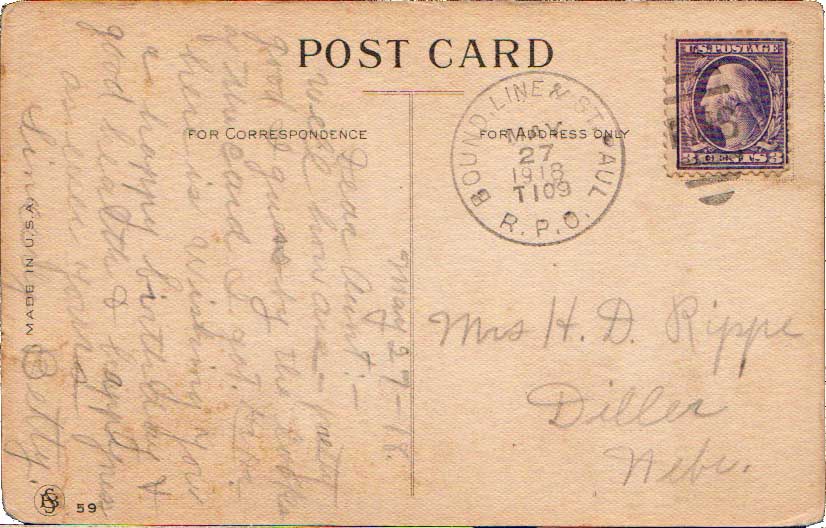 POST CARD
FOR CORRESPONDENCE
FOR ADDRESS ONLY
U.S. POSTAGE
3 CENTS 3
BOUND. LINE & ST. PAUL
MAY
27
1918
T109
R.P.O.
May 27-18.
Dear Aunt:-
Well how are - pretty
good I guess by the looks
of the card I got.
here is wishing you
a happy birthday &
good health & happiness
as ever yours
Sincerely
Betty.
Mrs H. D. Rippe
Diller
Nebr.
MADE IN U.S.A.
59